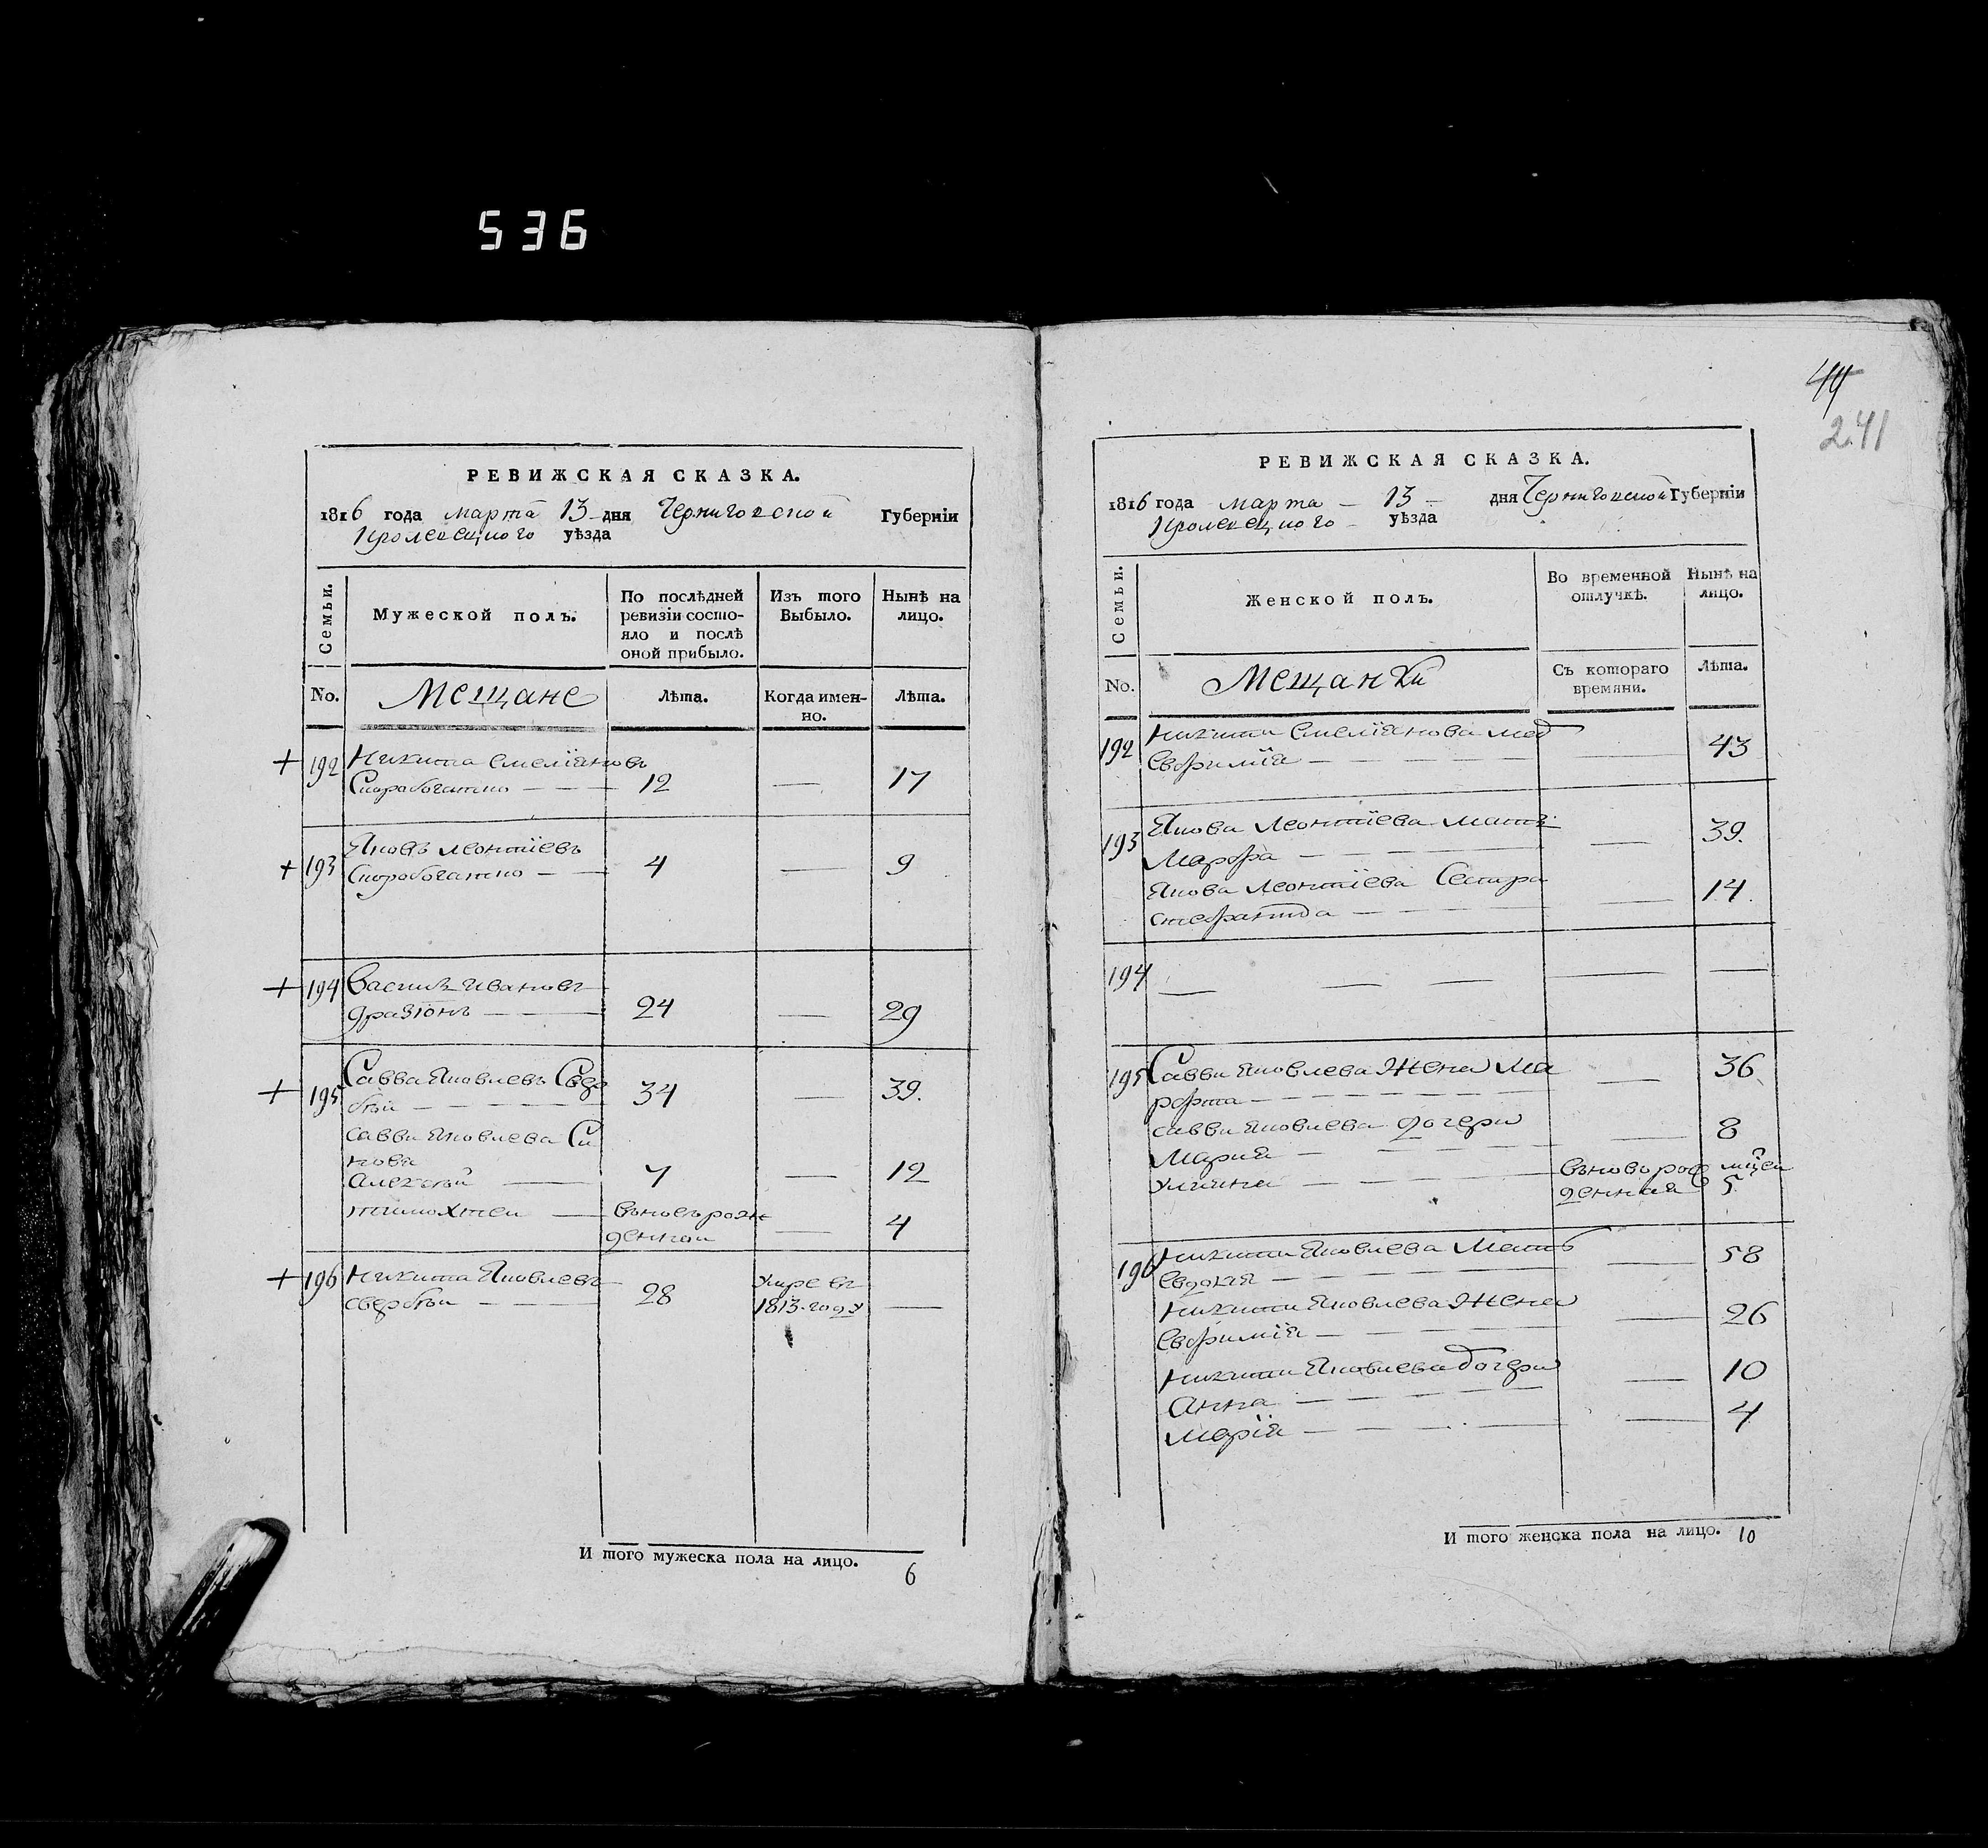 536
РЕВИЖСКАЯ СКАЗКА.
1816 года марта 13 дня Черниговской Губерніи
Кролевецкого уѣзда
Семьи.
Мужеской полъ.
По послѣдней ревизіи состояло и послѣ оной прибыло.
Изъ того Выбыло.
Нынѣ на лицо.
No.
Мещане
Лѣта.
Когда именно.
Лѣта.
192 Никита Емеліяновъ
Скоробогатко — — — 12 — 17
193 Яковъ Леонтіевъ
Скоробогатко — — 4 — 9
194 Василь Ивановъ
— — 24 — 29
195 Савва Яковлевъ Свер
бѣй — — — 34 — 39.
Савви Яковлева Си
нови
Алексѣй — 7 — 12
Тимохтей — вьновърож
денной — 4
196 Никита Яковлевъ
Свербѣй — — 28 Умре въ
1813 году —
И того мужеска пола на лицо. 6
44
241
РЕВИЖСКАЯ СКАЗКА.
1816 года марта — 13 — дня Черниговской Губерніи
Кролевецкого уѣзда
Семьи.
Женской полъ.
Во временной отлучкѣ.
Нынѣ на лицо.
No.
Мещанки
Съ котораго времяни.
Лѣта.
192 Никити Емеліянова мат
Евфимія — — — — — 43
193 Якова Леонтіева мать
Марфа — — — — 39.
Якова Леонтіева Сестра
— — — — 14.
194 — — — — —
195 Савви Яковлева Жена Ма
рфта — — — — — 36
Савви Яковлева дочери
Марія — — — — 8
Улияна — — — вьноворож мѣцей
денная 5
196 Никити Яковлева Мать
Евдокия — — — — 58
Никити Яковлева Жена
Евфимія — — — — 26
Никити Яковлева дочери
Анна — — — — 10
Марія — — — — 4
И того женска пола на лицо. 10